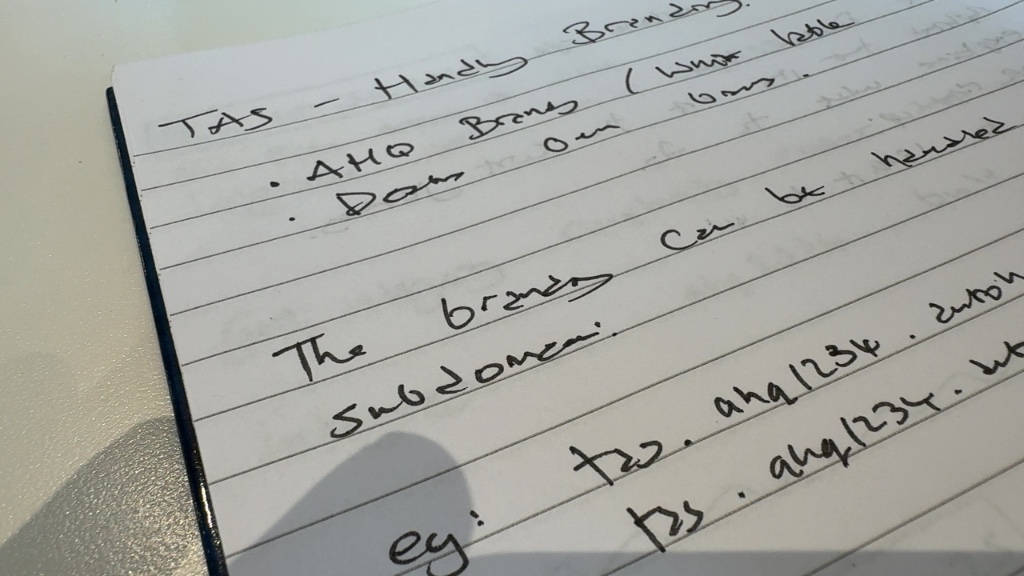 TAS - Handy Branding.
· AHQ Brandg (White lable
· Dealer own brand.
The branding can be handled
subdomain.
eg: tas.ahq1234.autoh
tas.ahq1234.